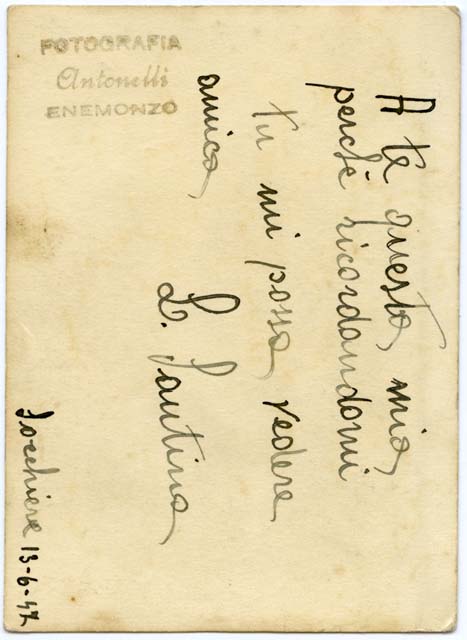 FOTOGRAFIA
Antonelli
ENEMONZO
A te questa, mia
perché ricordandomi
tu mi possa vedere
amica
L. Santina
Socchieve 13-6-47